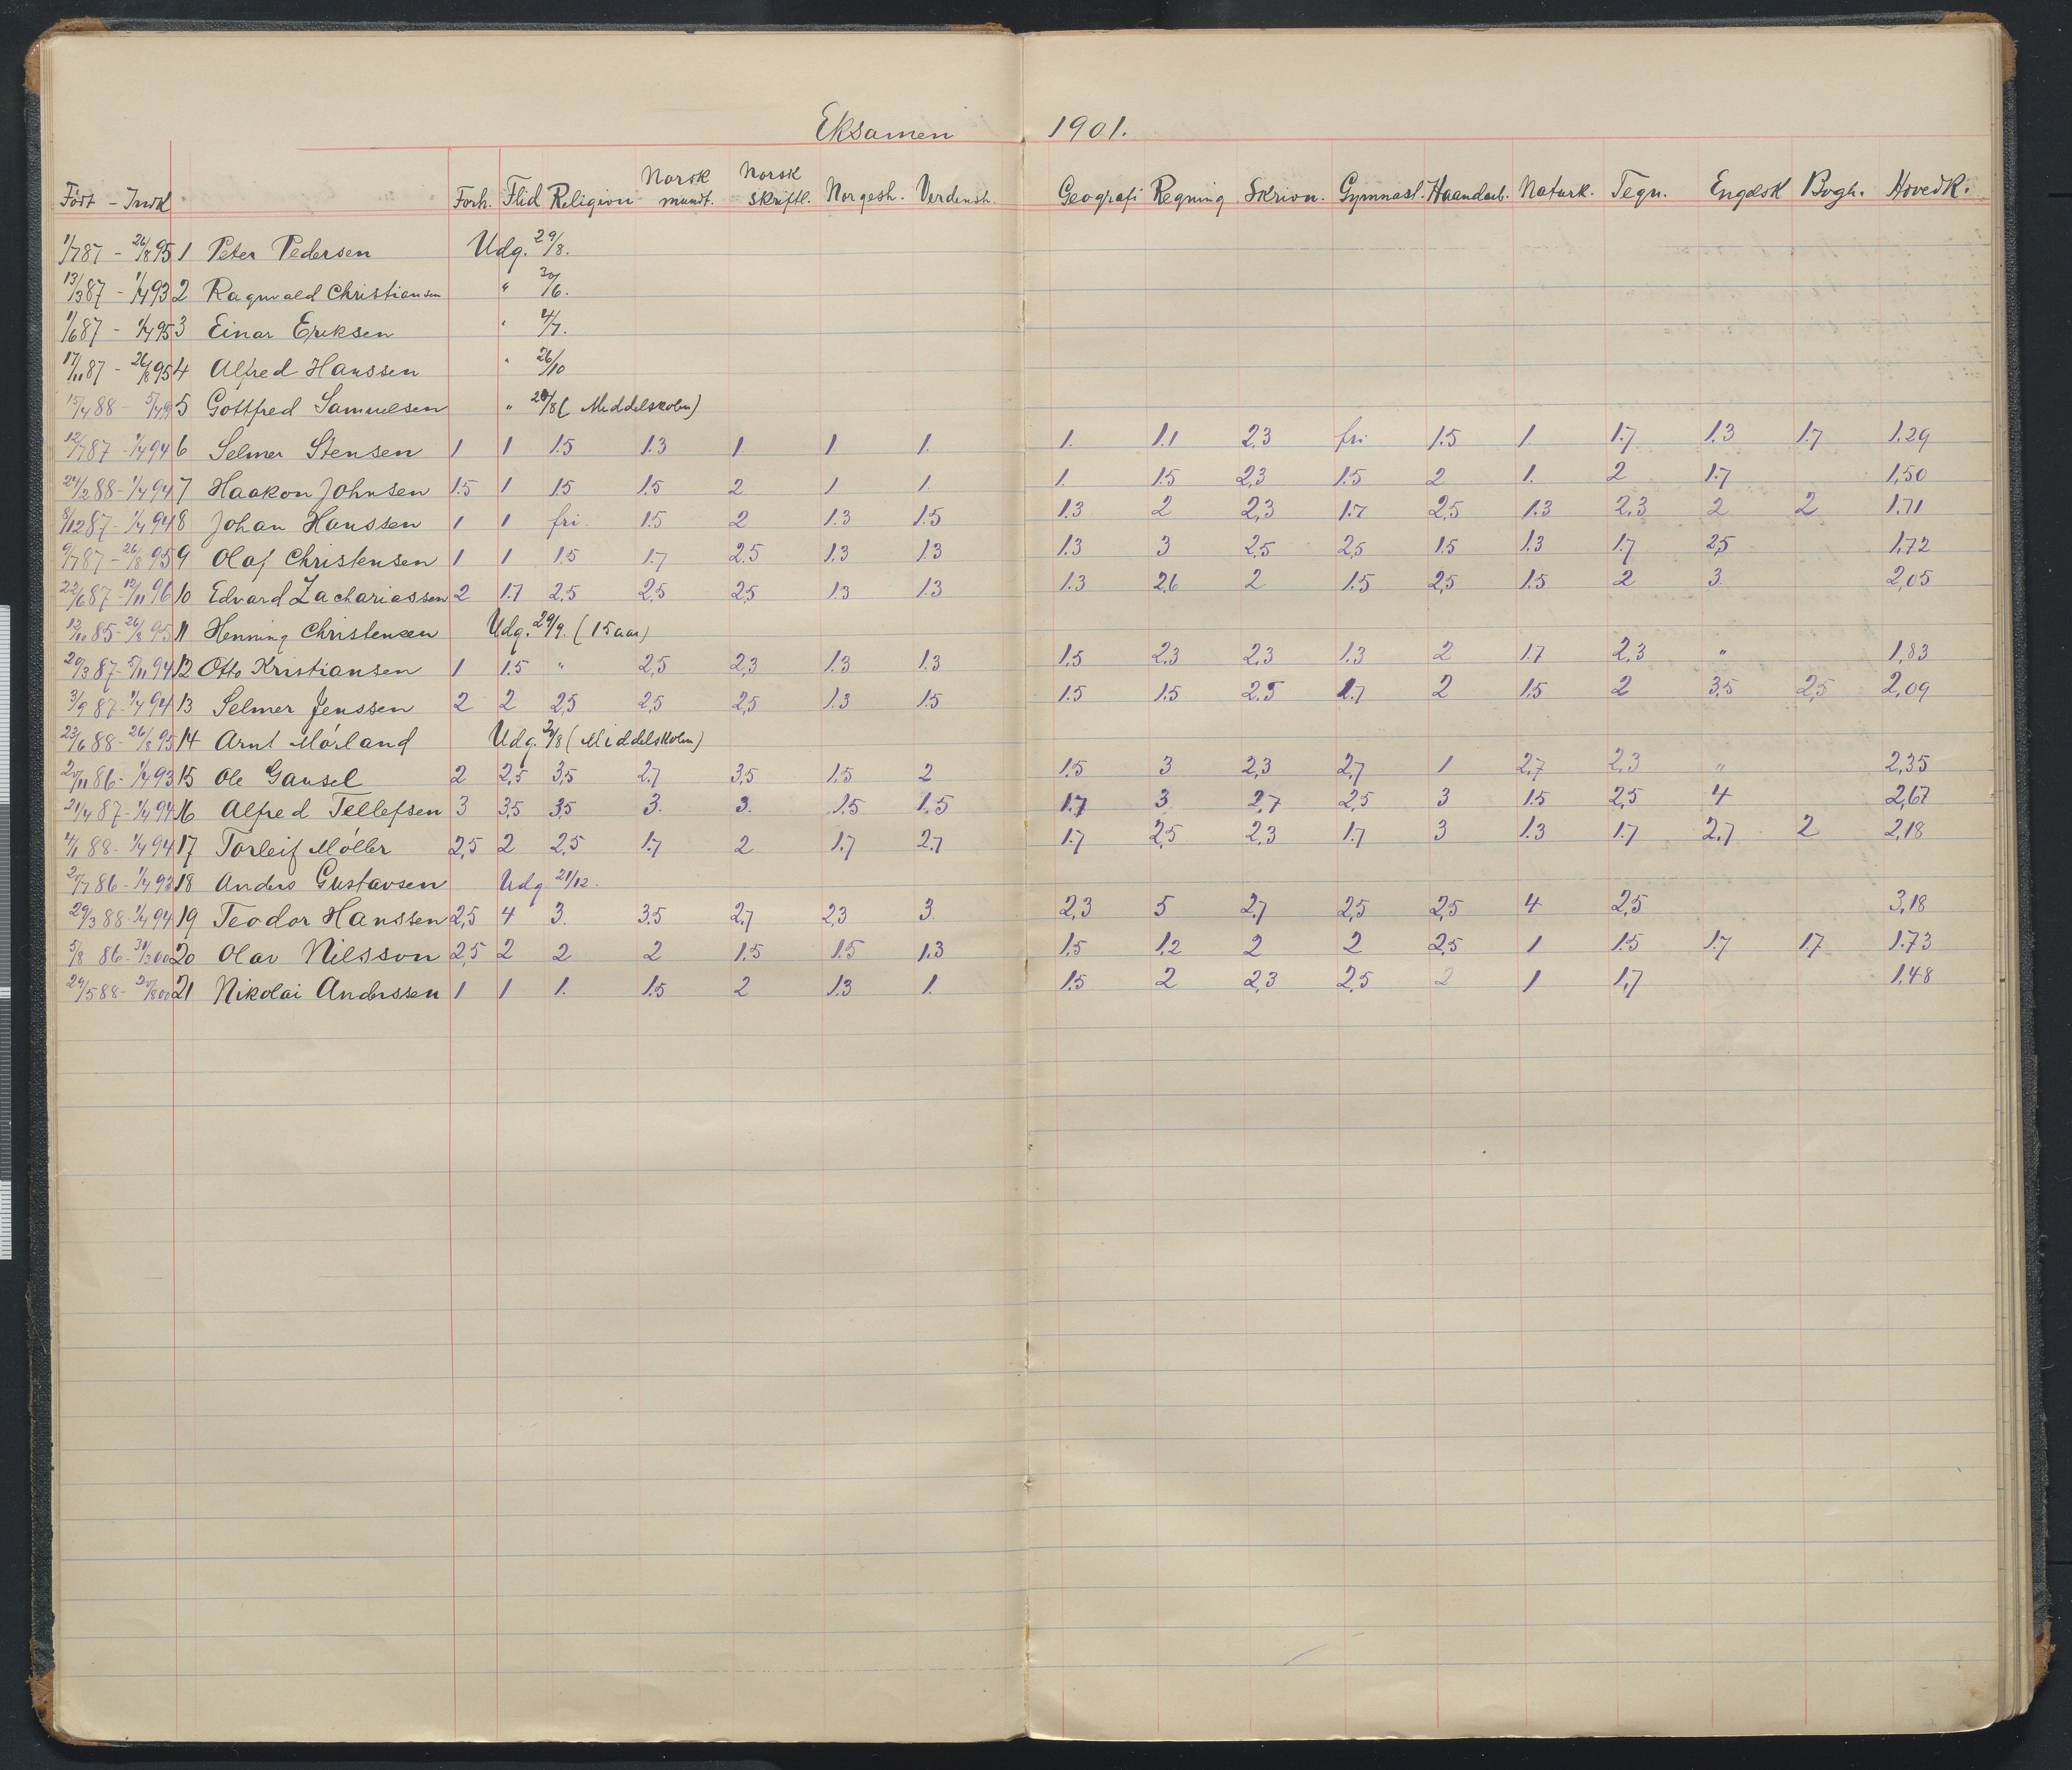 Eksamen 1901.
Født - Indk. Forh. Flid Religion Norsk mundt. Norsk skriftl. Norgesh. Verdensh. Geografi Regning Skrivn. Gymnast. Haandarb. Naturk. Tegn. Engelsk Bogh. Hovedk.
1/7 87 - 26/8 95 1 Peter Pedersen Udg. 29/8.
13/3 87 - 1/4 93 2 Ragnvald Christiansen " 30/6.
1/6 87 - 1/4 95 3 Einar Eriksen " 4/7.
17/11 87 - 26/8 95 4 Alfred Hanssen " 26/10
15/4 88 - 5 Gottfred Samuelsen " 20/8 (Middelskolen)
12/7 87 - 1/4 94 6 Selmer Stensen 1 1 1.5 1.3 1. 1 1. 1. 1.1 2.3 fri 1.5 1. 1.7 1.3 1.7 1.29
24/2 88 - 1/4 94 7 Haakon Johnsen 1.5 1 1.5 1.5 2 1 1. 1. 1.5 2,3 1.5 2 1. 2 1.7 1,50
8/12 87 - 1/4 94 8 Johan Hanssen 1 1 fri. 1.5 2 1.3 1.5 1.3 2 2,3 1.7 2,5 1.3 2.3 2 2 1.71
9/7 87 - 26/8 95 9 Olaf Christensen 1 1 1.5 1.7 2.5 1.3 1.3 1.3 3 2.5 2,5 1.5 1.3 1.7 2,5 1,72
22/6 87 - 12/11 96 10 Edvard Zachariassen 2 1.7 2.5 2,5 2,5 1.3 1.3 1.3 2,6 2 1.5 2,5 1.5 2 3. 2,05
12/10 85 - 26/8 95 11 Henning Christensen Udg. 29/9. (15 aar)
20/3 87 - 5/11 94 12 Otto Kristiansen 1 1.5 " 2,5 2,3 1.3 1.3 1,5 2,3 2,3 1.3 2 1.7 2,3 " 1,83
3/9 87 - 1/4 94 13 Selmer Jenssen 2 2 2,5 2,5 2,5 1.3 1.5 1.5 1.5 2.5 1.7 2 1.5 2 3,5 2,5 2,09
23/6 88 - 26/8 95 14 Arnt Mørland Udg. 20/8 (Middelskolen)
20/11 86 - 1/4 93 15 Ole Gausel 2 2,5 3,5 2.7 3,5 1.5 2 1.5 3 2,3 2,7 1 2,7 2,3 " 2,35
21/4 87 - 1/4 94 16 Alfred Tellefsen 3 3,5 3,5 3. 3. 1.5 1.5 1.7 3. 2,7 2,5 3 1.5 2,5 4 2,67
4/1 88 - 1/4 94 17 Torleif Møller 2,5 2 2,5 1.7 2 1.7 2.7 1.7 2,5 2.3 1.7 3 1.3 1.7 2,7 2 2,18
20/7 86 - 1/4 93 18 Anders Gustavsen Udg 21/12.
29/3 88 - 1/4 94 19 Teodor Hanssen 2,5 4 3. 3.5 2.7 2,3 3. 2,3 5 2.7 2,5 2,5 4 2,5 3,18
5/8 86 - 20 Olav Nilsson 2,5 2 2 2 1.5 1.5 1.3 1.5 1.2 2 2 2,5 1 1.5 1.7 1.7 1.73
29/5 88 - 20/8 00 21 Nikolai Anderssen 1 1 1. 1.5 2 1.3 1. 1.5 2 2,3 2,5 2 1 1,7 1,48